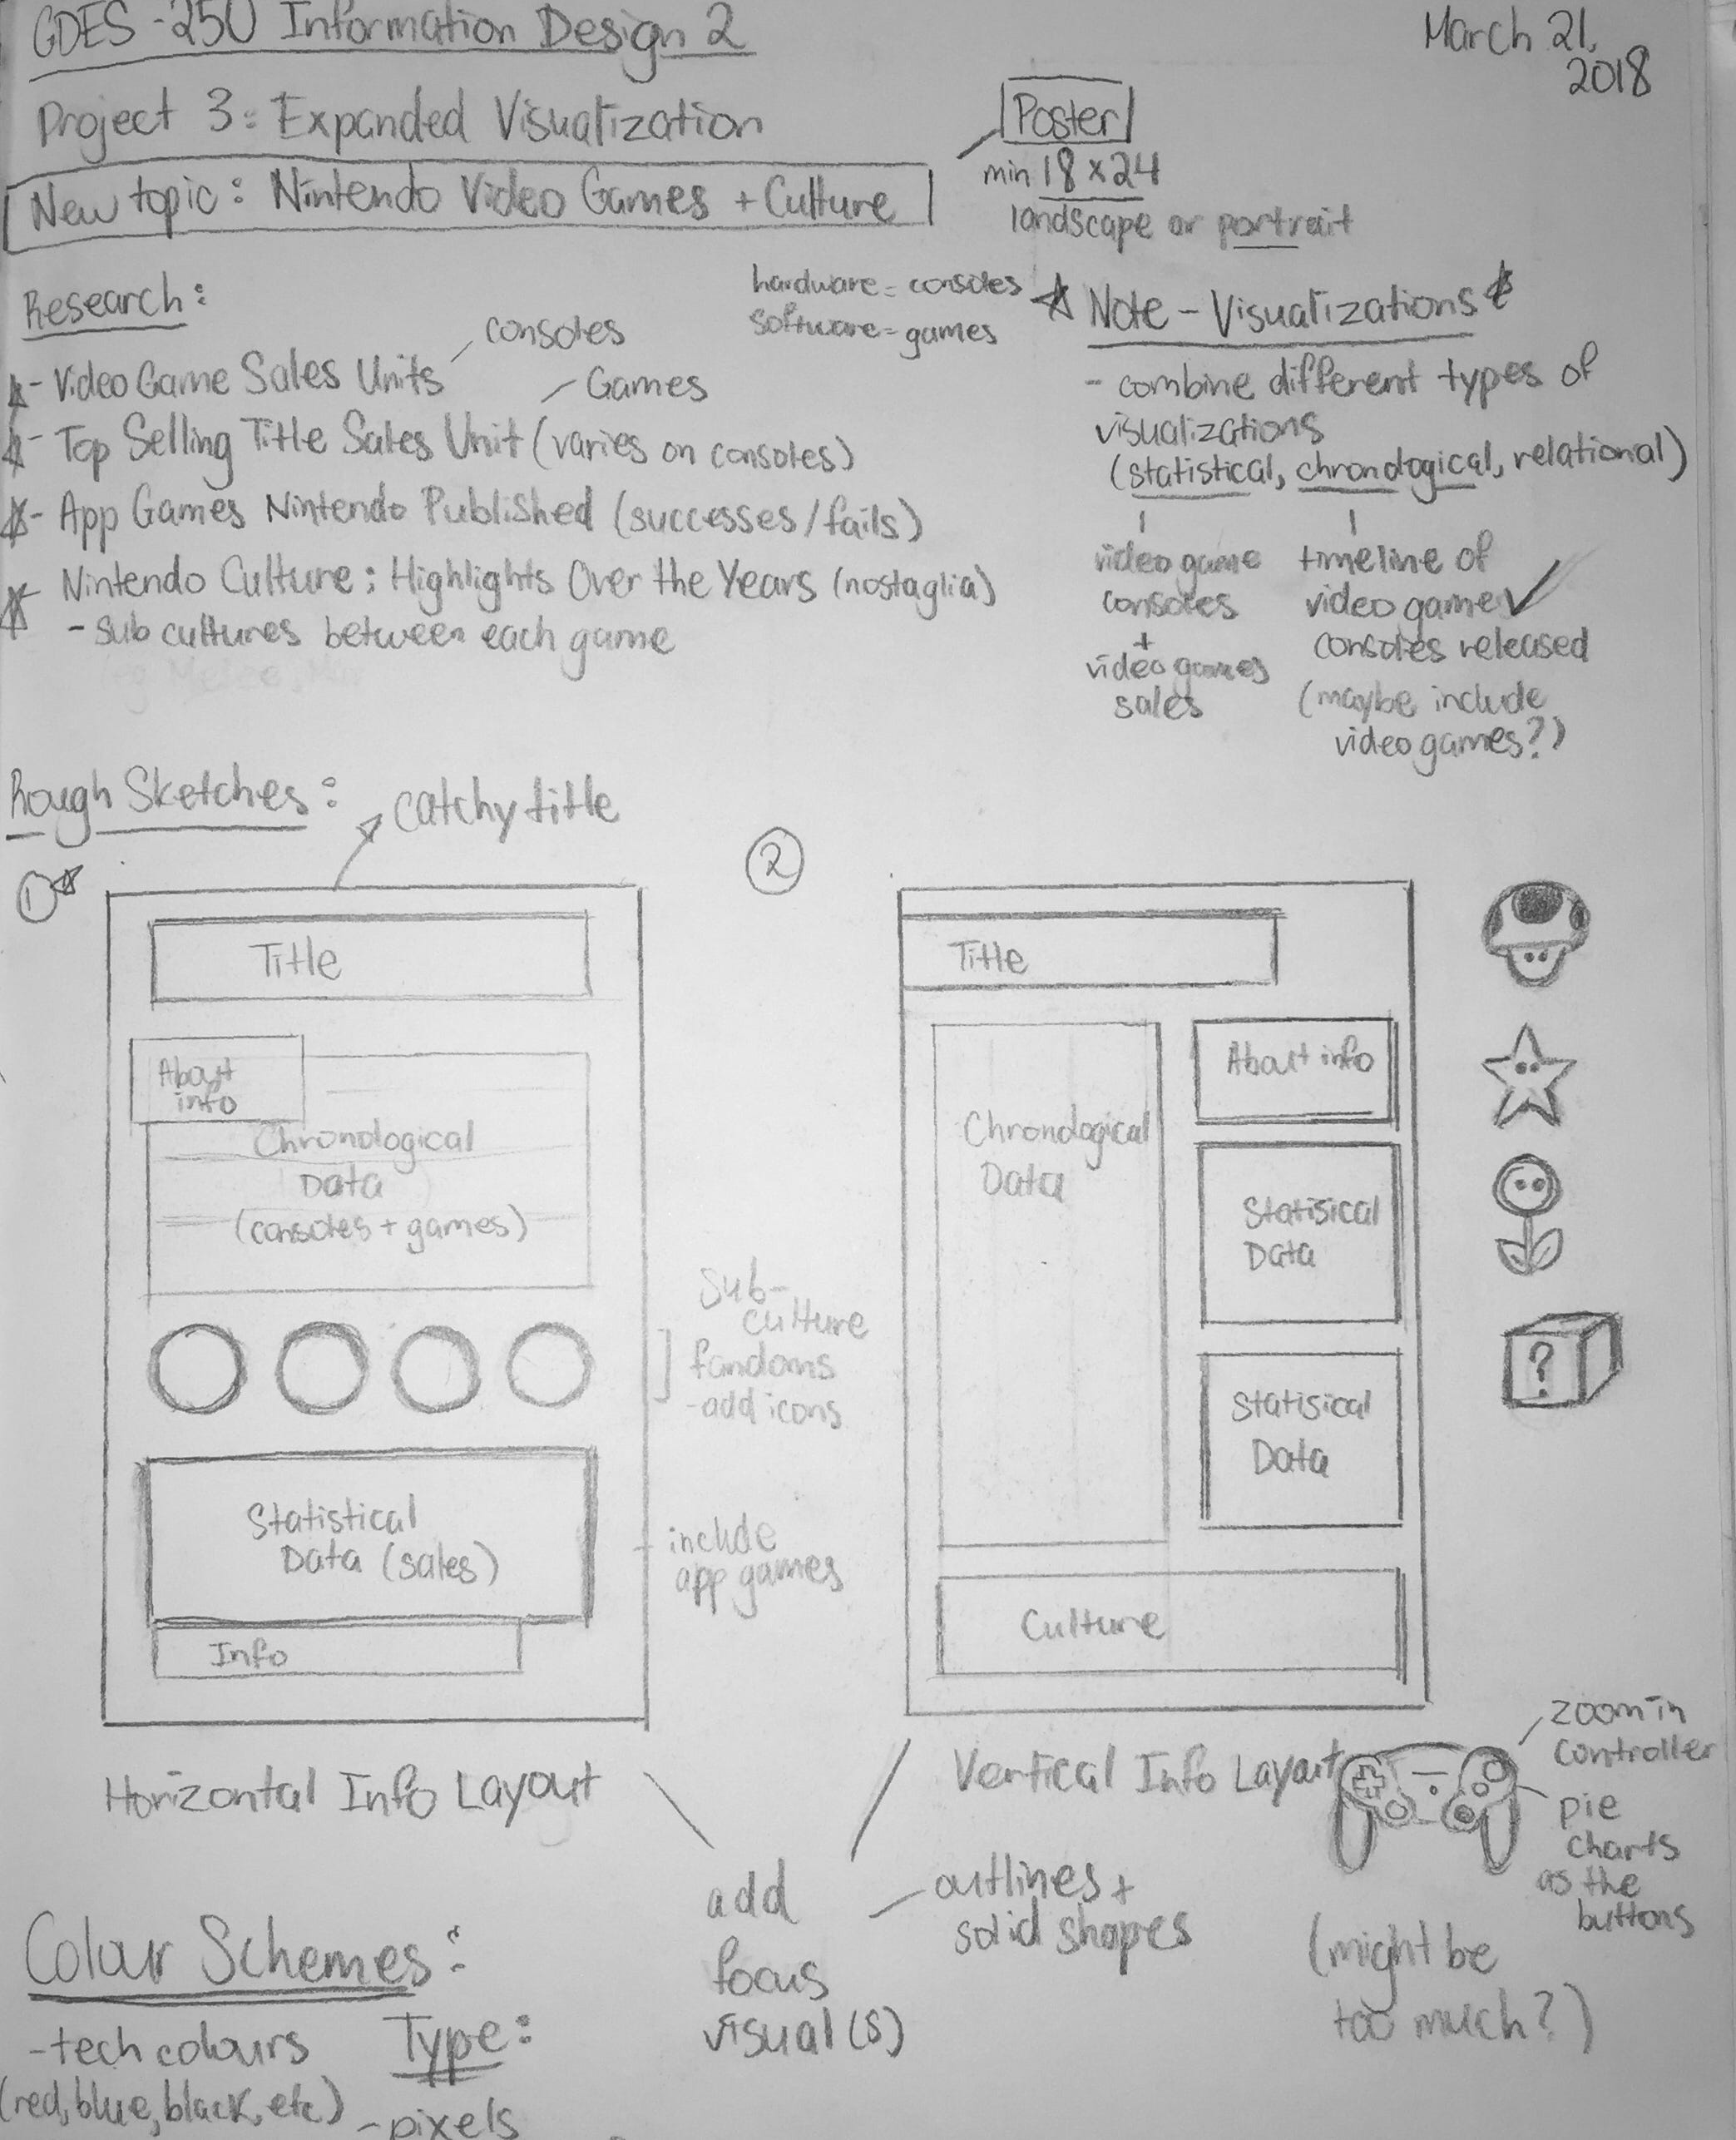 GDES-250 Information Design 2
March 21,
2018
Project 3: Expanded Visualization
Poster
min 18 x 24
landscape or portrait
New topic: Nintendo Video Games + Culture
Research:
- Video Game Sales Units
consoles
Games
hardware = consoles
software = games
- Top Selling Title Sales Unit (varies on consoles)
- App Games Nintendo Published (successes/fails)
Nintendo Culture: Highlights Over the Years (nostaglia)
- sub cultures between each game
Note - Visualizations
- combine different types of
visualizations
(statistical, chronological, relational)
video game
consoles
+
video games
sales
timeline of
video game
consoles released
(maybe include
video games?)
Rough Sketches:
catchy title
1
Title
About
info
Chronological
Data
(consoles + games)
Sub-
culture
fandoms
-add icons
Statistical
Data (sales)
- include
app games
Info
Horizontal Info Layout
2
Title
Chronological
Data
About info
Statisical
Data
Statisical
Data
Culture
?
Vertical Info Layout
zoom in
controller
pie
charts
as the
buttons
(might be
too much?)
add
focus
visual(s)
outlines +
solid shapes
Colour Schemes:
-tech colours
(red, blue, black, etc)
Type:
-pixels